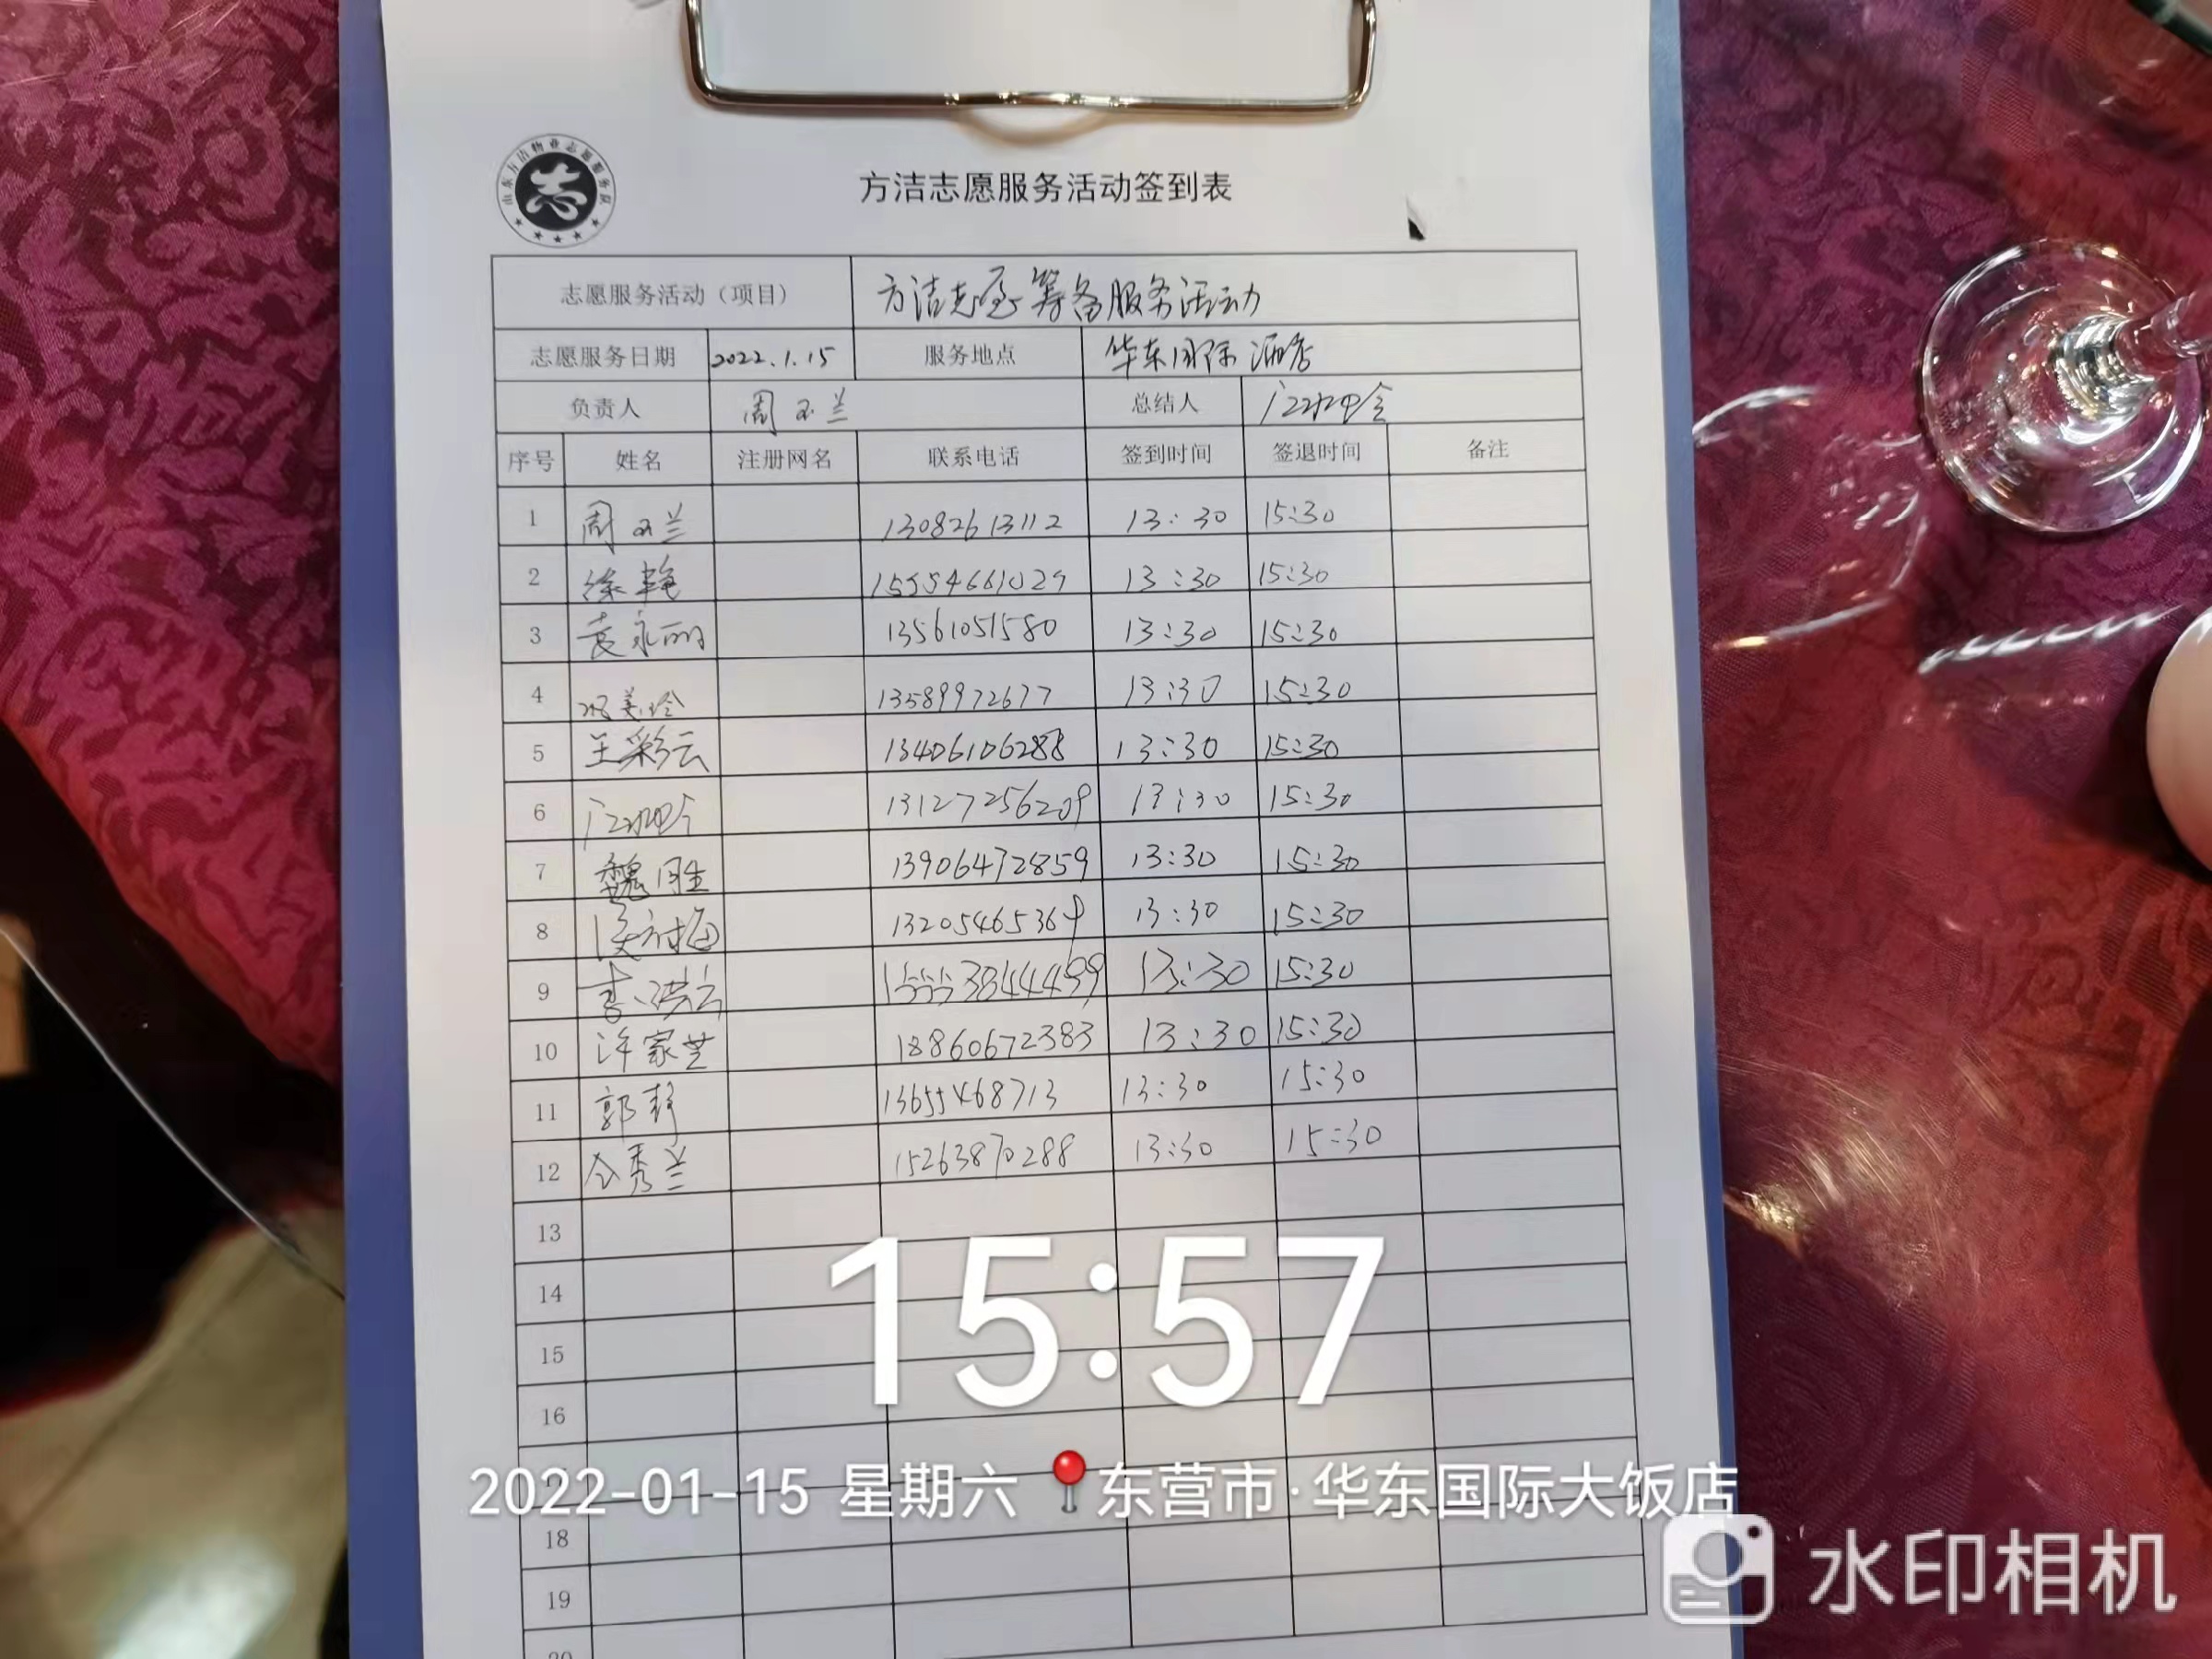 山东方洁物业志愿服务队
志
方洁志愿服务活动签到表
志愿服务活动（项目） 方洁志愿筹备服务活动
志愿服务日期 2022.1.15 服务地点 华东国际酒店
负责人 周玉兰 总结人
序号 姓名 注册网名 联系电话 签到时间 签退时间 备注
1 周玉兰 13082613112 13:30 15:30
2 徐艳 15554661029 13:30 15:30
3 袁永丽 13561051580 13:30 15:30
4 美玲 13589972677 13:30 15:30
5 王彩云 13406106288 13:30 15:30
6 13127256209 13:30 15:30
7 魏国生 13906472859 13:30 15:30
8 13205465364 13:30 15:30
9 李洪云 15553844499 13:30 15:30
10 许家芝 18860672383 13:30 15:30
11 郭静 13655468713 13:30 15:30
12 仝秀兰 15263870288 13:30 15:30
13
14
15
16
18
19
15:57
2022-01-15 星期六 东营市·华东国际大饭店
水印相机